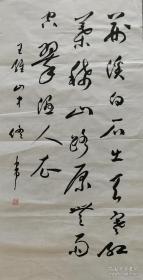 荆溪白石出天寒红
葉稀山路原無雨
空翠湿人衣
王维山中